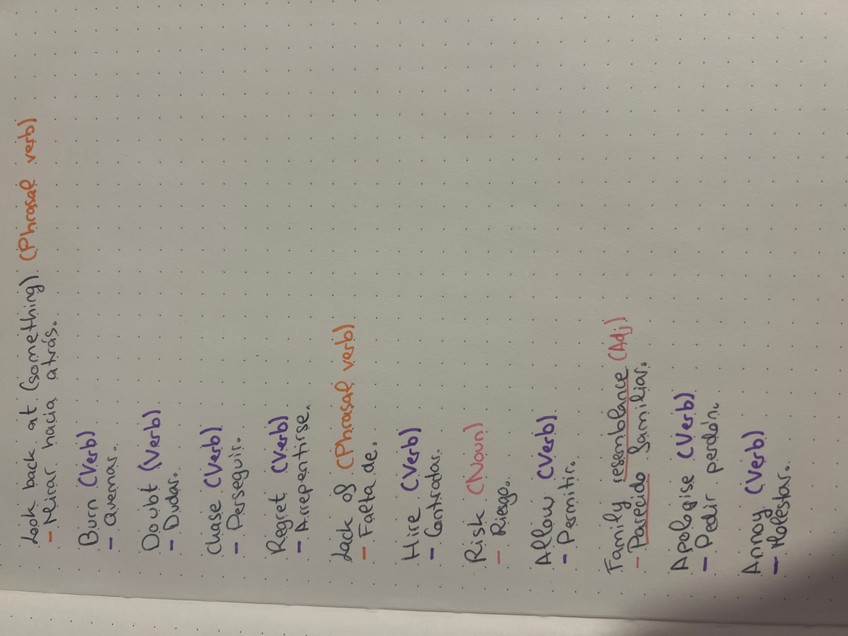 Look back at (something). (Phrasal verb)
- Mirar hacia atrás.
Burn (Verb)
- Quemar.
Doubt (Verb)
- Dudar.
Chase (Verb)
- Perseguir.
Regret (Verb)
- Arrepentirse.
Lack of (Phrasal verb)
- Falta de.
Hire (Verb)
- Contratar.
Risk (Noun)
- Riesgo.
Allow (Verb)
- Permitir.
Family resemblance (Adj)
- Parecido familiar.
Apologise (Verb)
- Pedir perdón.
Annoy (Verb)
- Molestar.